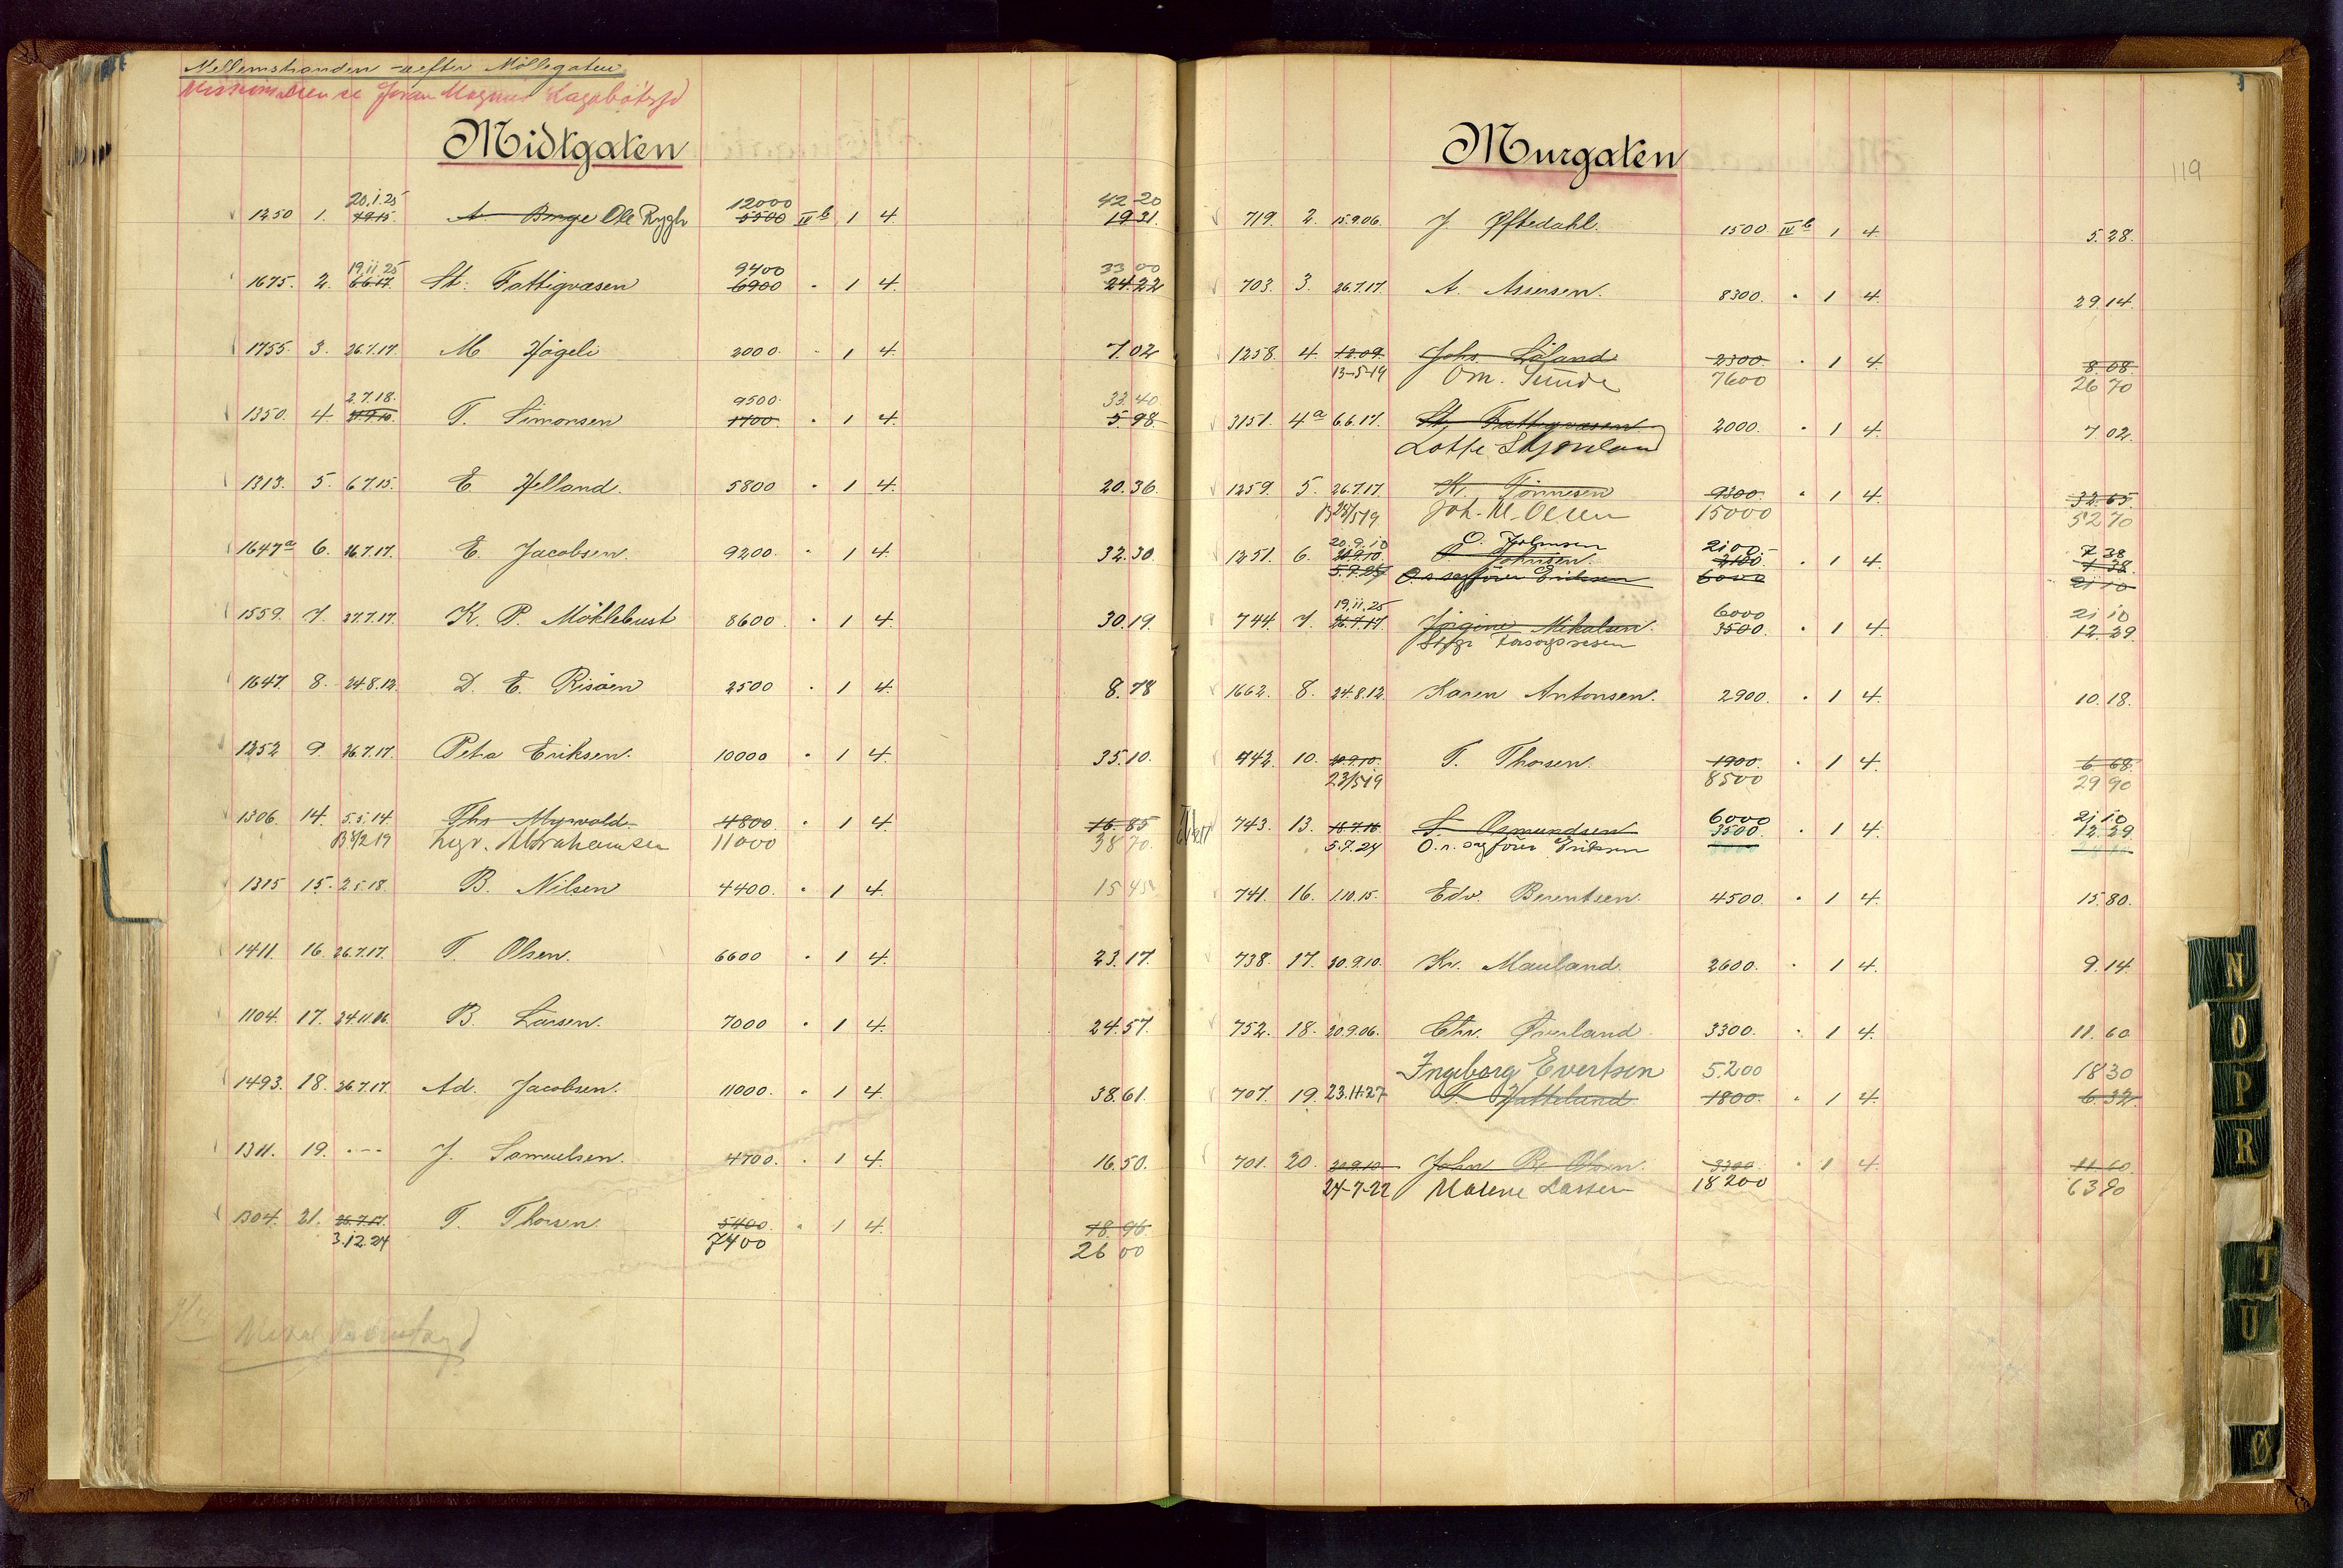 Mellemstranden - efter Möllegaten
Midtgaten
20.1.25 12000 42 20
1250 1. 4915 A. Berge Ole Rygh 5500 IV b 1 4 19 31.
19.11.25 9400 33 00
1675. 2. 6617 St. Fattigvæsen 6900 " 1 4. 24.22
1755. 3. 26.7.17. M. Högeli 2000. " 1 4. 7.02
2.7.18. 9500. 33.40
1350. 4. 20.9.10. T. Simonsen 1700. " 1 4. 5.98
1313. 5. 6.7.15. E. Helland. 5800 " 1 4. 20.36.
1647a 6. 26.7.17. E. Jacobsen. 9200. " 1 4. 32.30.
1559. 7. 27.7.17. K. P. Möklebust 8600. " 1 4. 30.19.
1647. 8. 24.8.12. D. E. Risöen 2500 " 1 4. 8.78
1252 9. 26.7.17. Petra Eriksen. 10000 " 1 4. 35.10.
1306. 14. 5.5.14. Ths Myrvold 4800. " 1 4. 16.85
B8/2 19 Abrahamsen 11000 38 70.
1315 15. 2.5.18. B. Nilsen 4400. " 1 4. 15 45
1411. 16. 26.7.17. T. Olsen. 6600 " 1 4. 23.17.
1104. 17. 24.11.16. B. Larsen. 7000 " 1 4. 24.57.
1493. 18. 26.7.17. Ad. Jacobsen. 11000. " 1 4. 38.61.
1311. 19. - - - J. Samuelsen. 4700. " 1 4. 16.50.
1304. 21. 26.7.17. T. Thorsen. 5400. " 1 4. 18.96.
3.12.24 7400 26 00
Murgaten
119
719. 2. 15.9.06. J. Oftedahl. 1500. IV b 1 4. 5.28.
703. 3. 26.7.17. A. Assersen. 8300. " 1 4. 29.14.
1258. 4. 12.09. Johs. Löland 2300. " 1 4. 8.08.
13-5-19 Om. Sunde 7600 26 70
3151. 4a 6.6.17. St. Fattigvæsen 2000. " 1 4. 7.02.
Lotte
1259. 5. 26.7.17. K. Tönnesen 9300. " 1 4. 32.65
B 28/5 19 Joh. M. Olsen 15000 52 70
20.9.10 O. Johnsen 2100.- 7 38
1251. 6. 20.9.10. O. Johnsen. 2100. " 1 4. 7.38.
5.7.24 O.r. sagförer Eriksen 6000 21 10
19.11.25 6000 21 10
744. 7. 26.7.17 Jörgine Mikalsen. 3500. " 1 4. 12.29
Forsorgsvesen
1662. 8. 24.8.12. Karen Antonsen. 2900. " 1 4. 10.18.
742. 10. 20.9.10. T. Thorsen. 1900. " 1 4. 6 68.
23/5 19 8500 29 90
6000 21 10
743. 13. 18.7.16. S. Osmundsen 3500. " 1 4. 12.29
5.7.24 O.r. sagförer Eriksen
741. 16. 1.10.15. Edv. Berentsen. 4500. " 1 4. 15.80.
738. 17. 20.9.10. Kr. Mauland. 2600. " 1 4. 9.14
752. 18. 20.9.06. Chr. Överland. 3300. " 1 4. 11.60
Ingeborg Evertsen 5.200 18 30
707. 19. 23.11.27 T. Hatteland 1800. " 1 4. 6.32.
701. 20. 20.9.10 John B. Olsen. 3300. " 1 4. 11.60.
24-7-22 Malene Larsen 18200 63 90
N
O
P
R
T
U
Ø